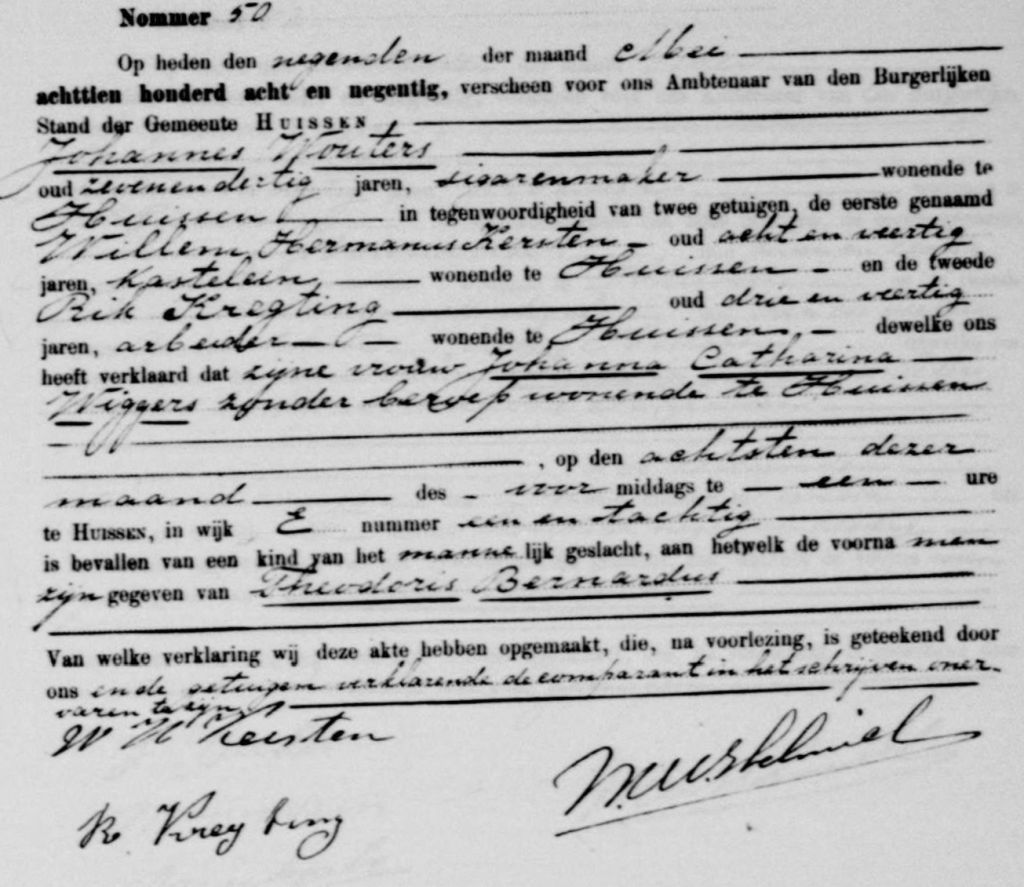 Nommer 50
Op heden den negenden der maand Mei
achttien honderd acht en negentig, verscheen voor ons Ambtenaar van den Burgerlijken
Stand der Gemeente HUISSEN,
Johannes Wouters
oud zevenendertig jaren, sigarenmaker wonende te
Huissen in tegenwoordigheid van twee getuigen, de eerste genaamd
Willem Hermanus Kersten oud acht en veertig
jaren, kastelein, wonende te Huissen en de tweede
Rik Kregting oud drie en veertig
jaren, arbeider wonende te Huissen, dewelke ons
heeft verklaard dat zijne vrouw Johanna Catharina
Wiggers zonder beroep wonende te Huissen
, op den achtsten dezer
maand des voor middags te een ure
te HUISSEN, in wijk E nummer een en tachtig
is bevallen van een kind van het manne lijk geslacht, aan hetwelk de voorna men
zijn gegeven van Theodoris Bernardus
Van welke verklaring wij deze akte hebben opgemaakt, die, na voorlezing, is geteekend door
ons en de getuigen verklarende de comparant in het schrijven oner-
varen te zijn
W H Kersten
R Kreyting